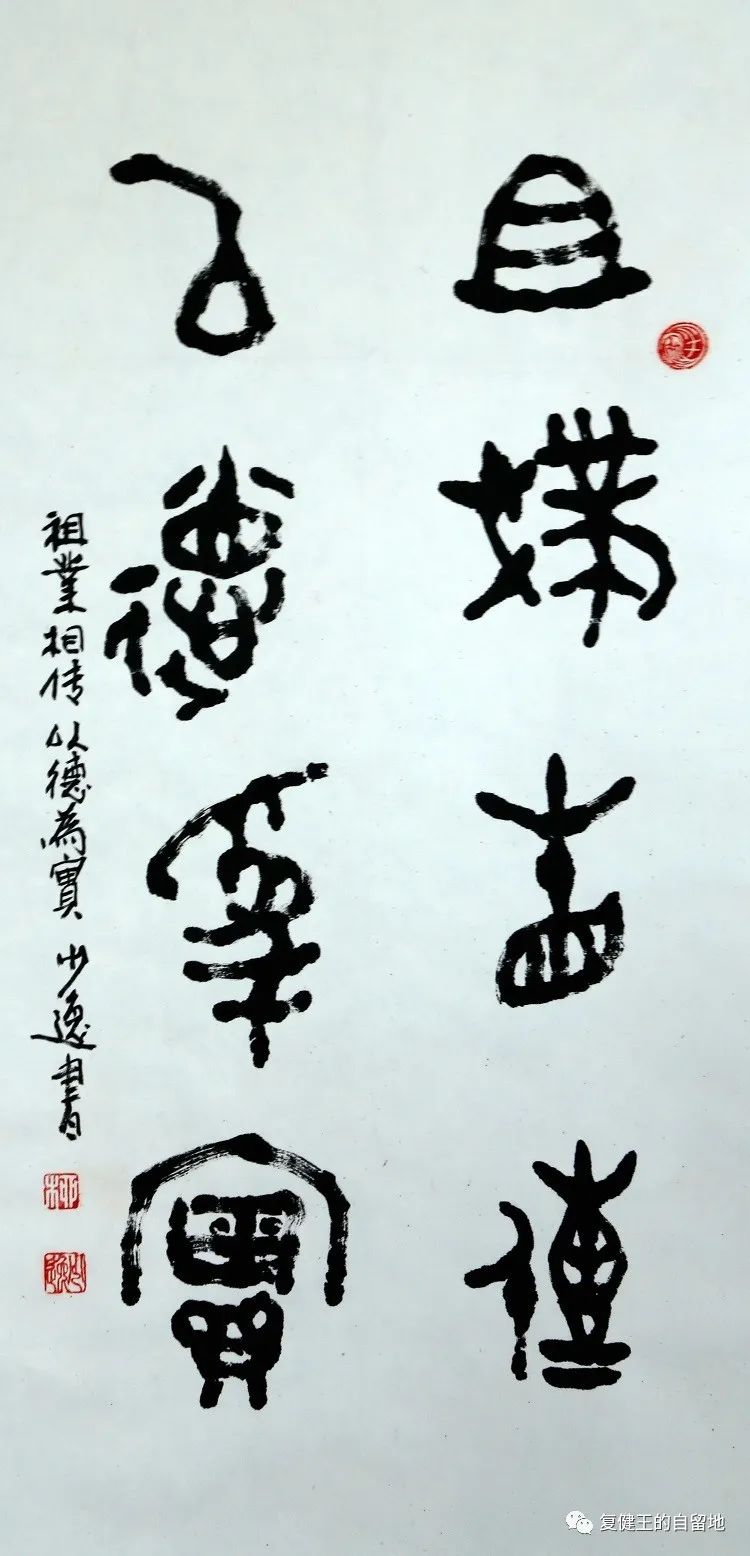 且業相傳
以德為寶
祖業相传以德為寶 少逸書
柳
复健王的自留地